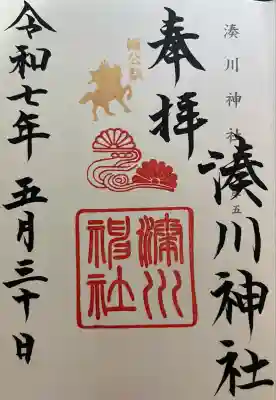 湊川神社
奉拝
湊川神社
楠公
湊川
神社
令和七年 五月三十日